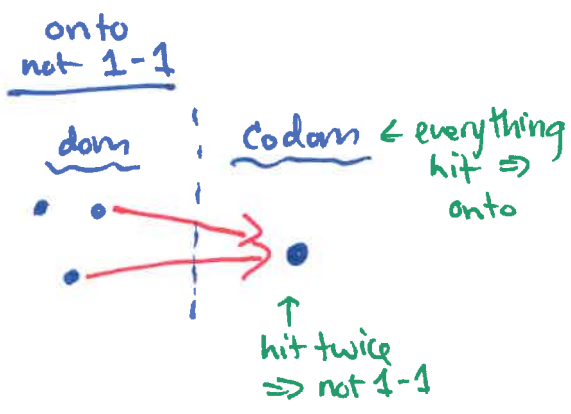 onto
not 1-1
dom
codom ← everything
hit ⇒
onto
↑
hit twice
⇒ not 1-1